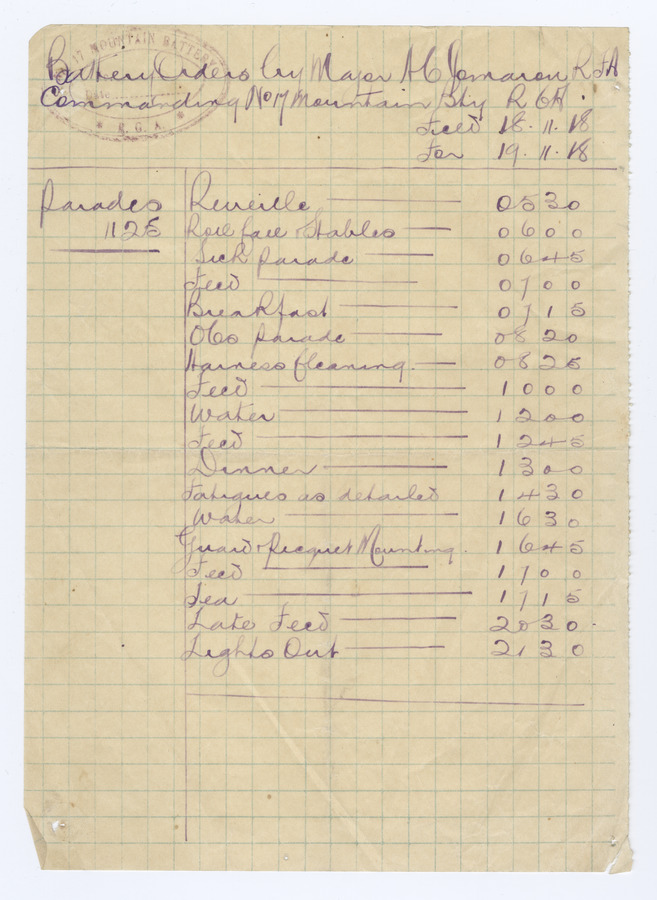 17 MOUNTAIN BATTERY
Date
R. G. A.
Battery Orders by Major AC Cameron RFA
Commanding No 17 Mountain Bty RGA.
Field 18.11.18
For 19.11.18
Parades
1125
Reveille 0530
Roll Call & Stables 0600
Sick Parade 0645
Feed 0700
Breakfast 0715
Parade 0820
Harness Cleaning. 0825
Feed 1000
Water 1200
Feed 1245
Dinner 1300
Fatigues as detailed 1430
Water 1630
Guard & Picquet Mounting. 1645
Feed 1700
Tea 1715
Late Feed 2030.
Lights Out 2130